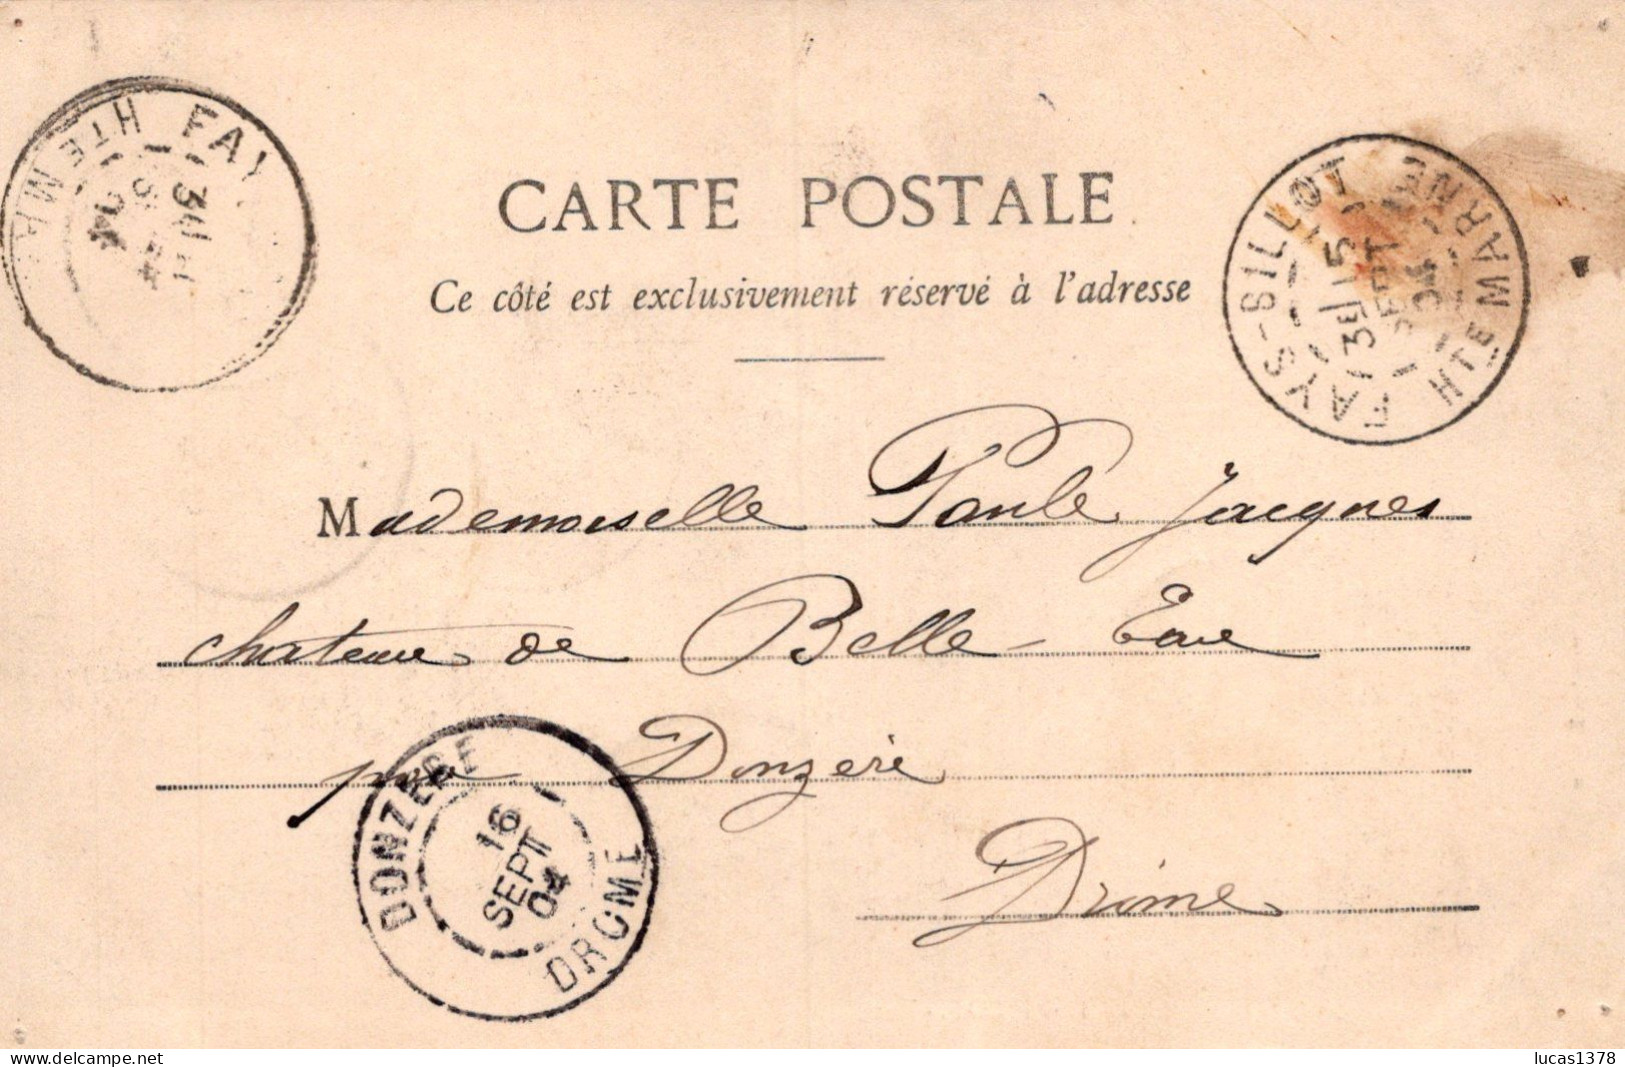 CARTE POSTALE
Ce côté est exclusivement réservé à l'adresse
Mademoiselle Paule Jacques
chateau de Belle Eau
par Donzère
Drôme
FAYS-BILLOT HTE MARNE
3E / 15
SEPT
04
FAY HTE MAR
3E
04
DONZERE DROME
16
SEPT
04
www.delcampe.net
lucas1378